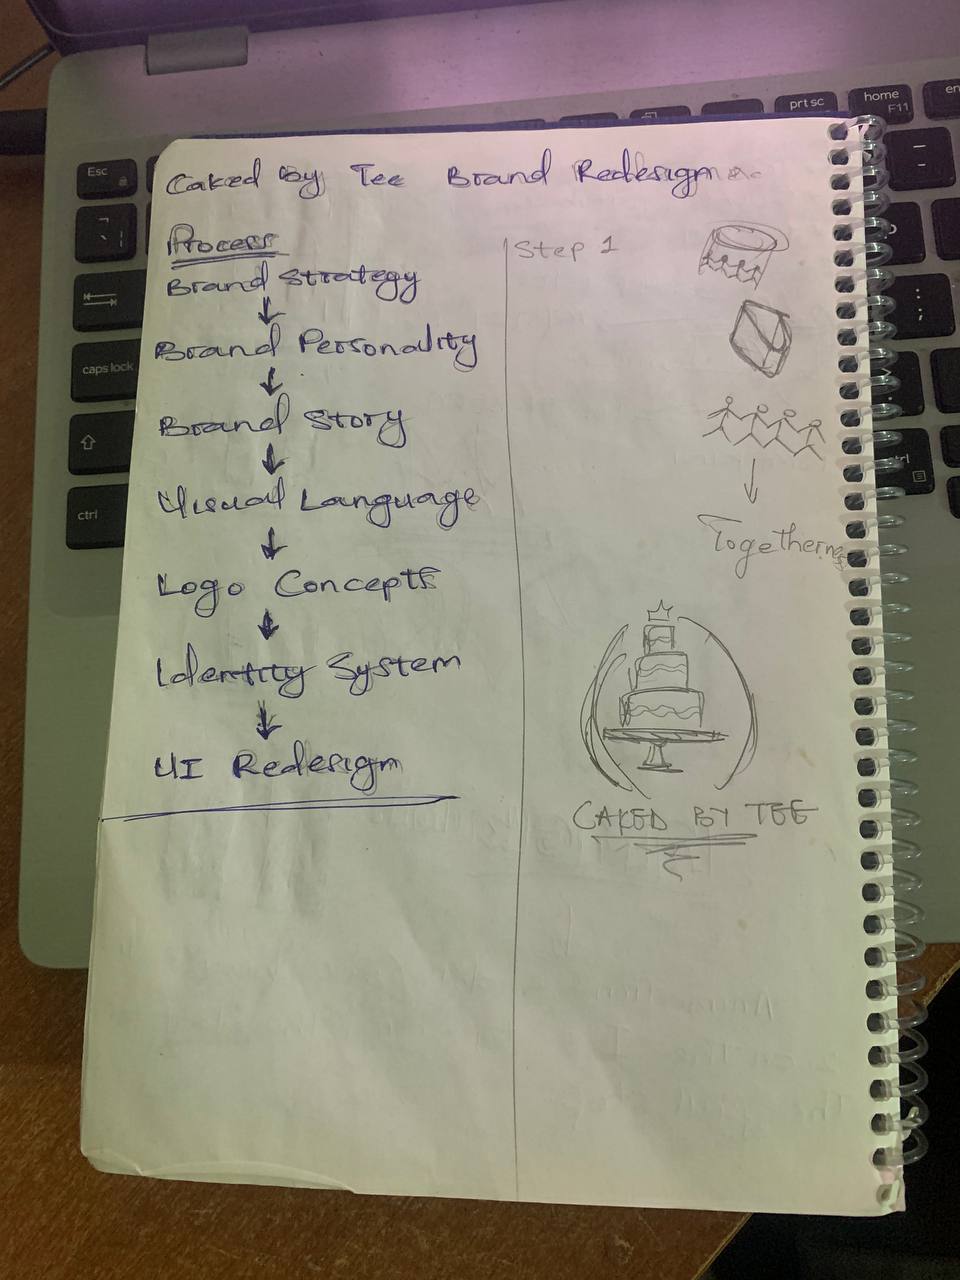 Caked By Tee Brand Redesign
Process
Brand Strategy
Brand Personality
Brand Story
Visual Language
Logo Concepts
Identity System
UI Redesign
Step 1
Togetherness
CAKED BY TEE
Esc
caps lock
ctrl
prt sc
home
F11